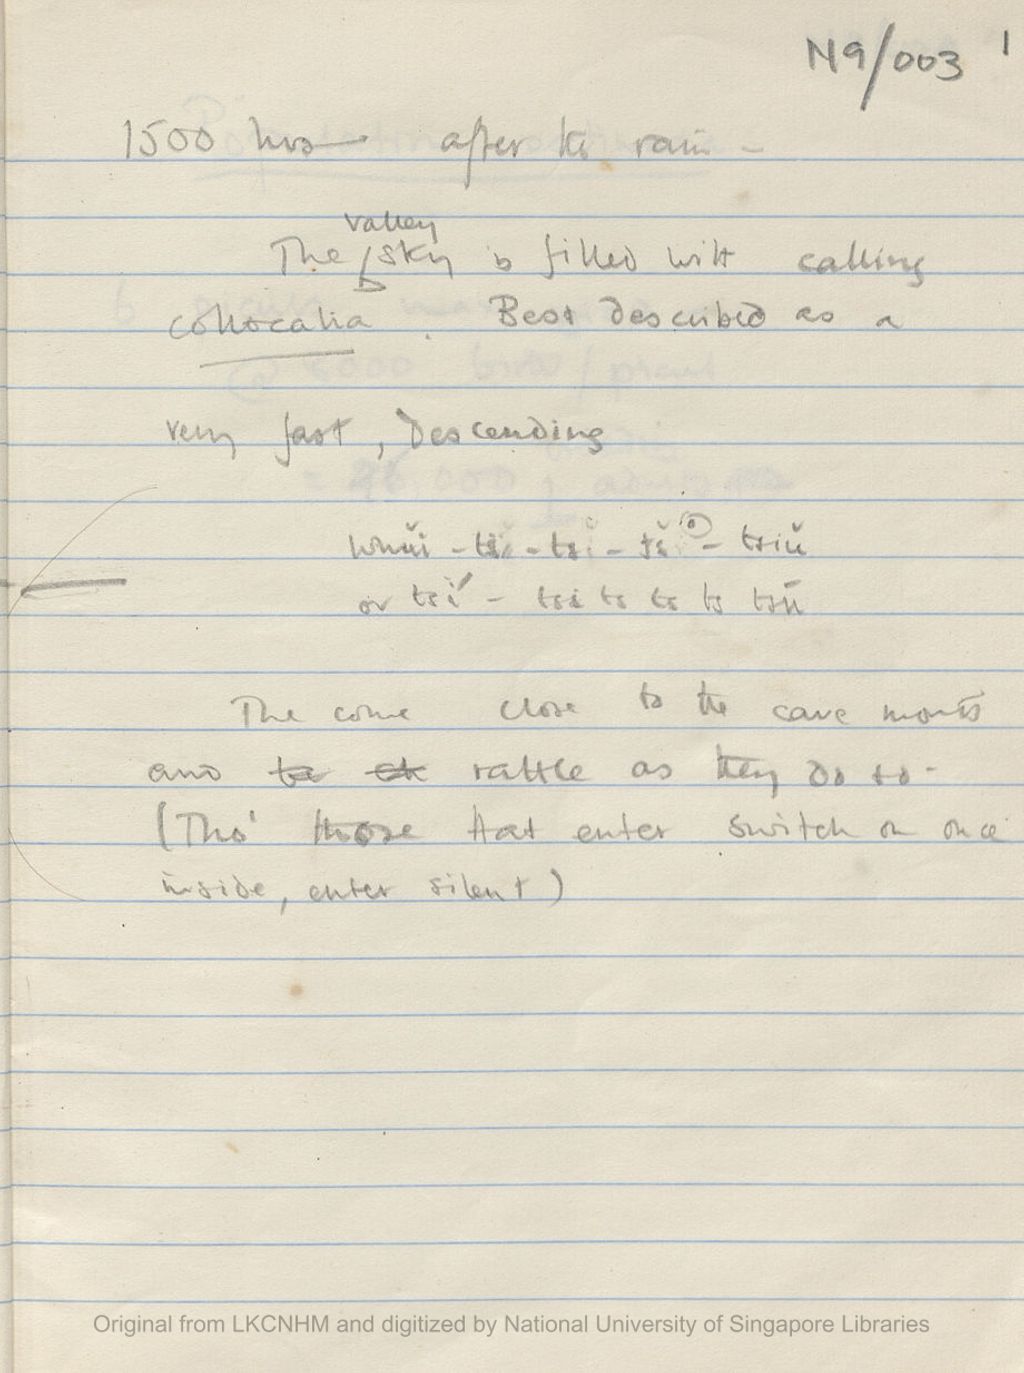 N9/003 1
1500 hrs — after the rain –
valley
The sky is filled with calling
collocalia. Best described as a
very fast, Descending
whŭi - tsi - tsi - ts - tsiŭ
or tsí - tsi ts ts ts tsū
The come close to the cave mouth
and to ck rattle as they do so.
(Tho' those that enter switch on once
inside, enter silent)
Original from LKCNHM and digitized by National University of Singapore Libraries